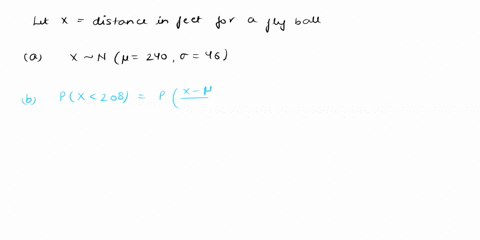 Let X = distance in feet for a fly ball
(a) X ~ N (μ = 240, σ = 46)
(b) P(X < 208) = P(X-μ